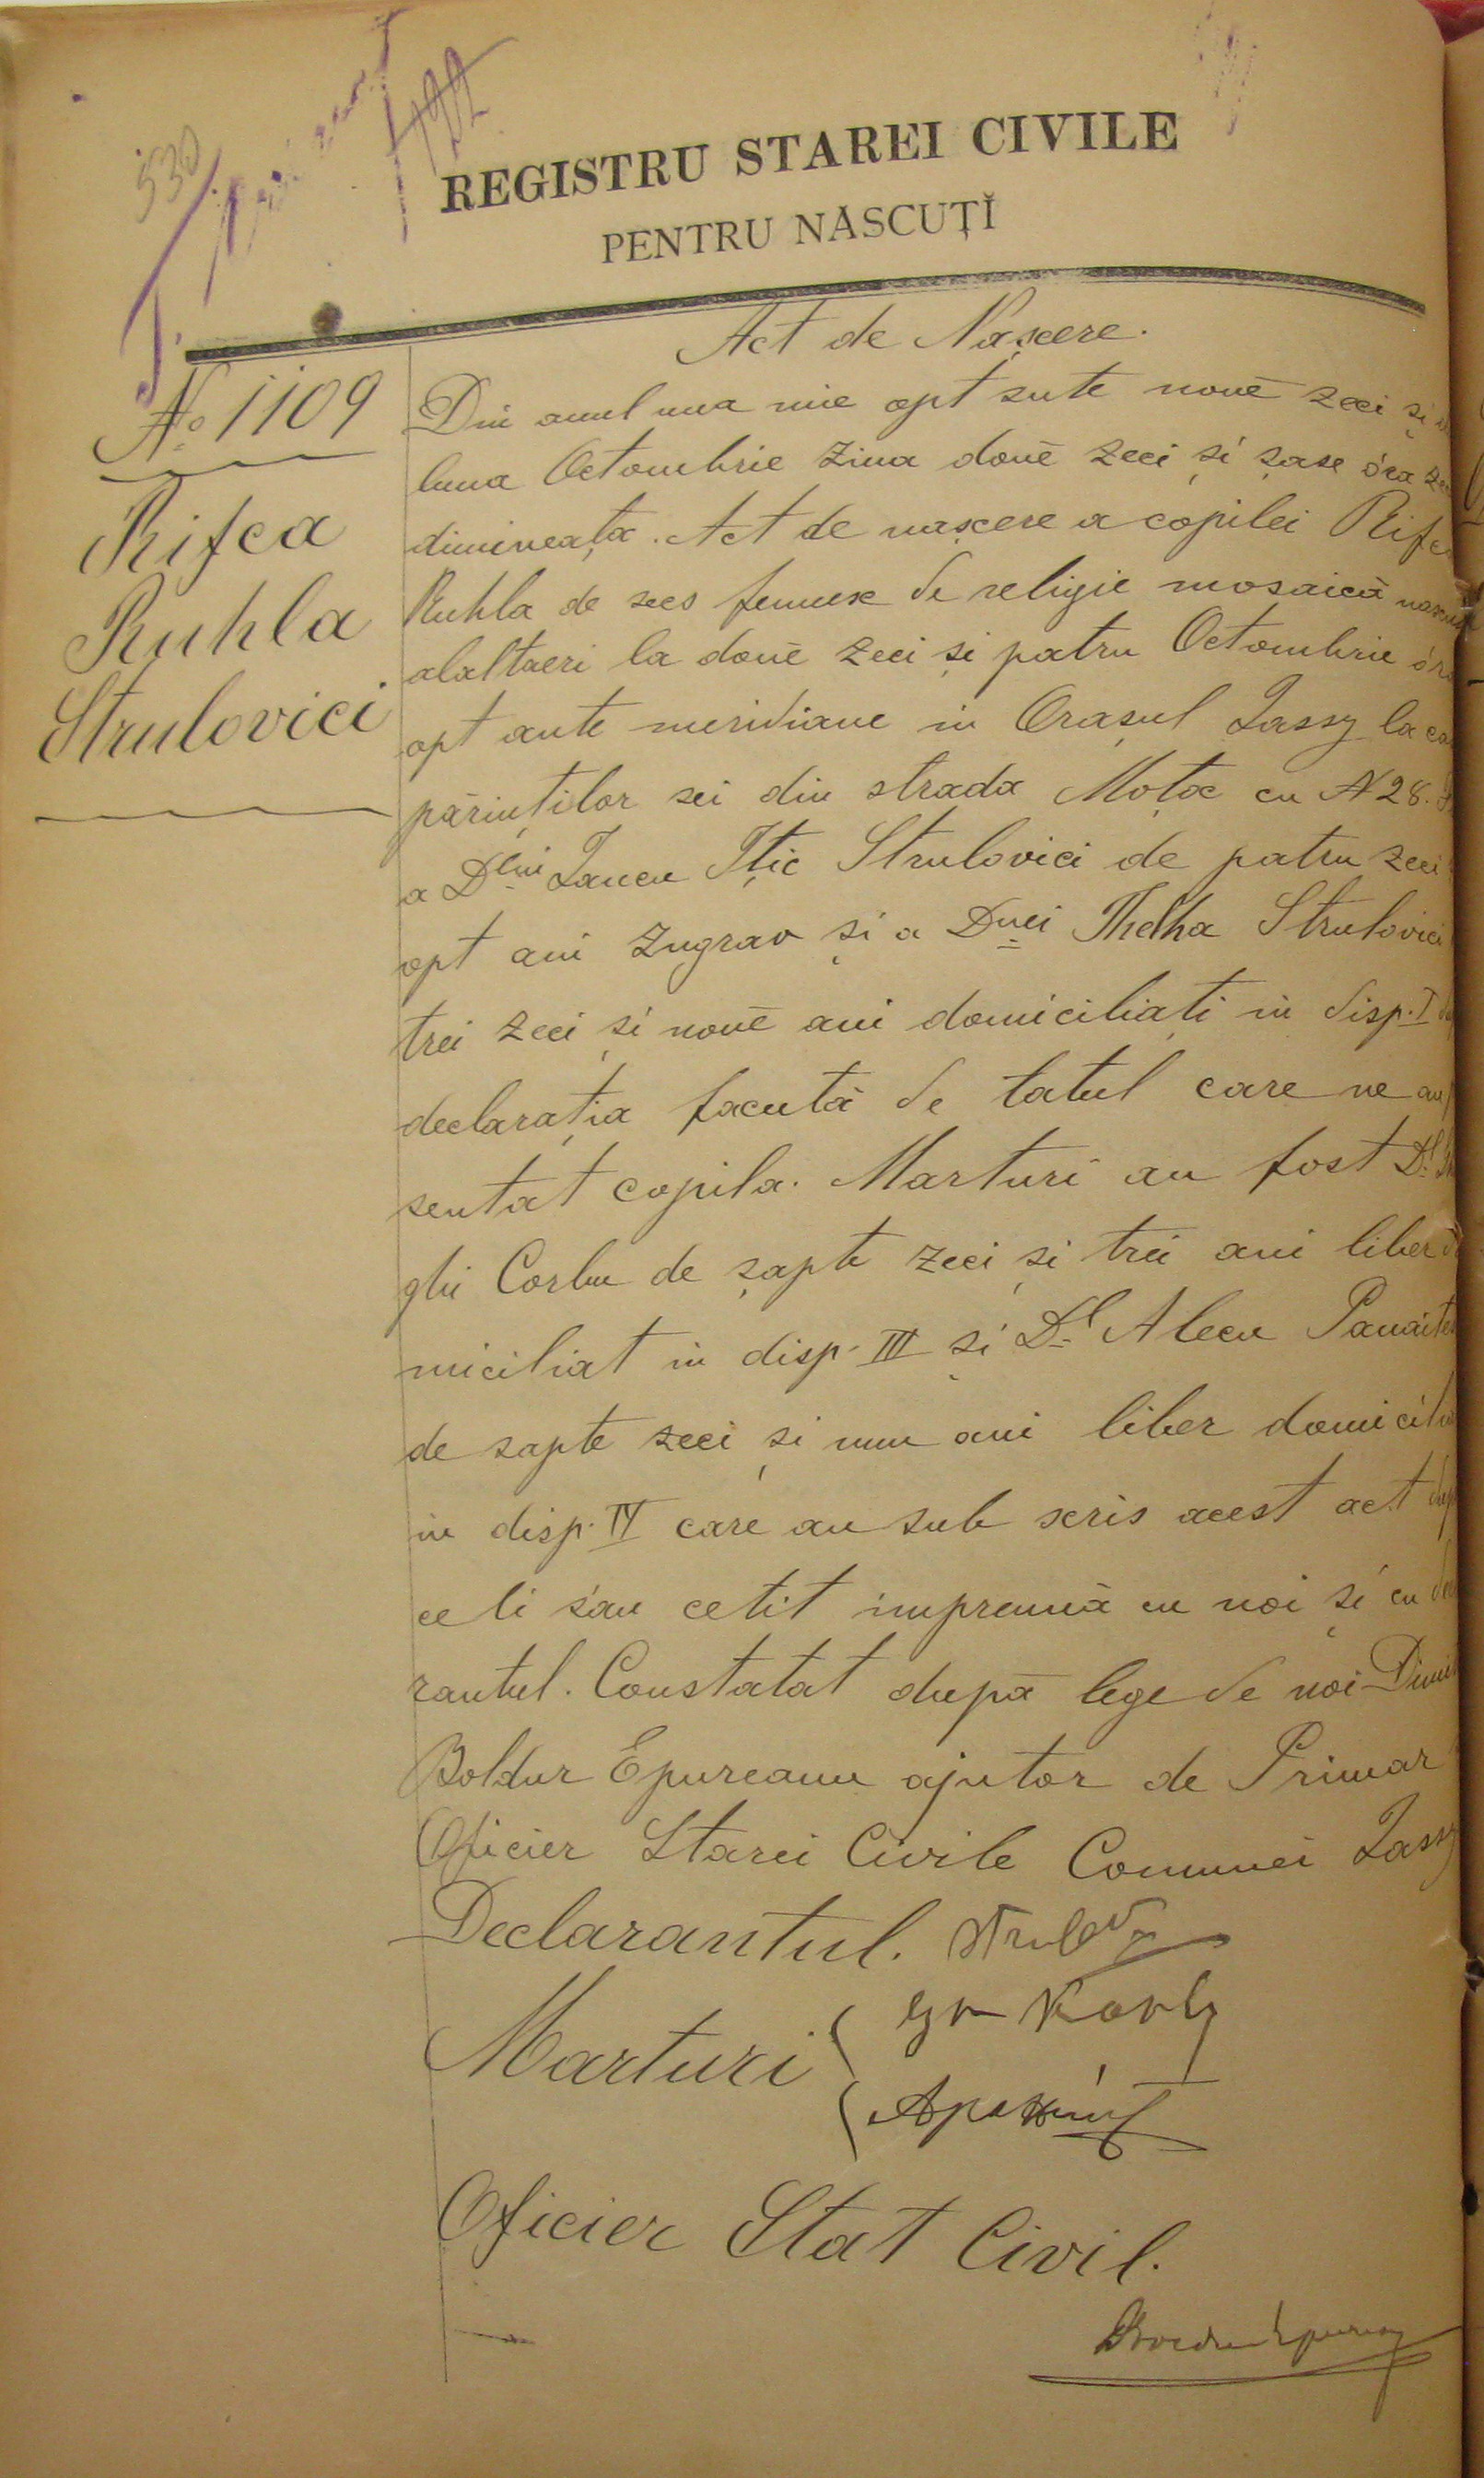 530
REGISTRU STAREI CIVILE
PENTRU NASCUȚĬ
Act de Nascere.
No 1109
Rifca
Ruhla
Strulovici
Din anul una mie opt sute nouĕ zeci și
luna Octombrie ziua douĕ zeci și șase óra
dimineața. Act de nascere a copilei Rifca
Ruhla de secs femeesc de religie mosaică
alaltaeri la douĕ zeci și patru Octombrie
opt ante meridiane in Orașul Iassy la
părinților sei din strada Moțoc cu N 28.
a Dlui Iancu Ițic Strulovici de patru zeci
opt ani zugrav și a Dnei Strulovici
trei zeci și nouĕ ani domiciliați in disp. I
declarația facută de tatul care ne au
sentat copila. Marturi au fost Dl
ghi Corbu de șapte zeci și trei ani liber
miciliat in disp. III și Dl Alecu
de sapte zeci și unu ani liber
in disp. IV care au sub scris acest act
ce li s'au cetit impreună cu noi și cu
rantul. Constatat după lege de noi
Boldur Epureanu ajutor de Primar
Oficier Starei Civile Comunei Iassy
Declarantul.
Marturi
Oficier Stat Civil.